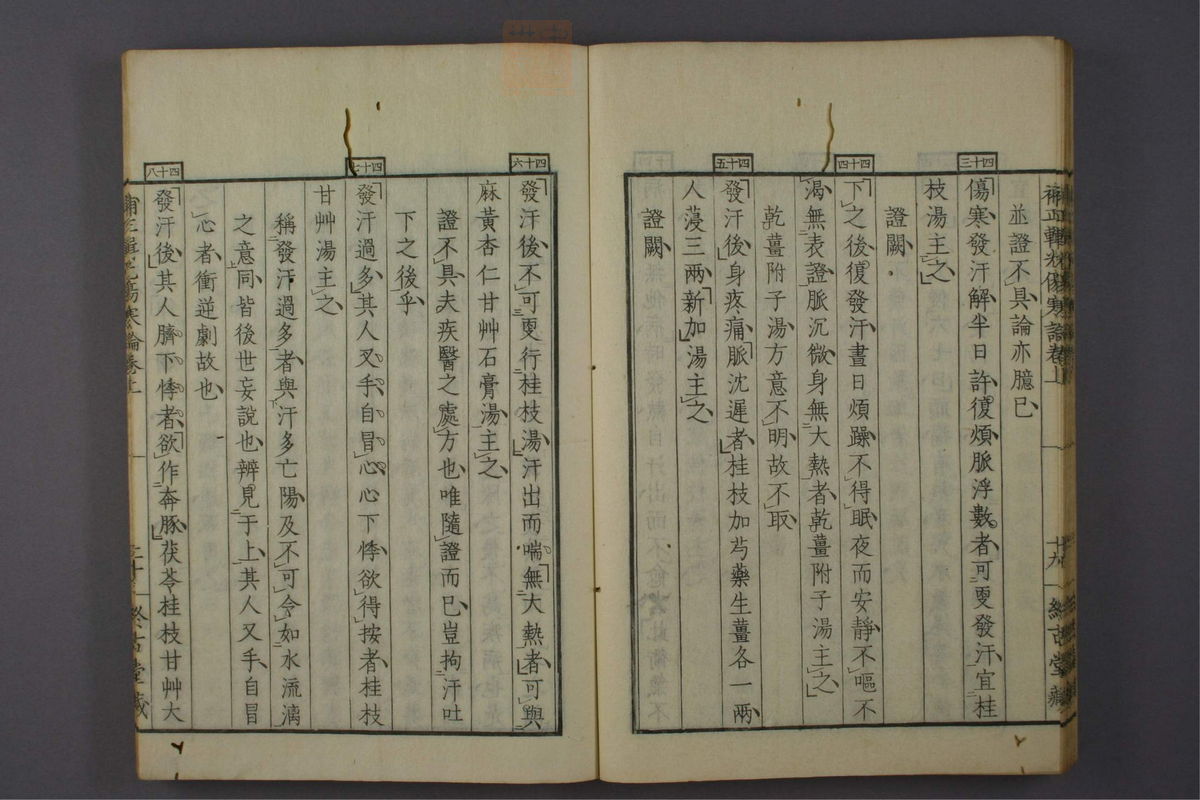 補正輯光傷寒論卷上
十九
終古堂藏
並證不具論亦臆已
四十三
傷寒發汗解半日許復煩脈浮數者可更發汗宜桂
枝湯主之
證闕
四十四
下之後復發汗晝日煩躁不得眠夜而安靜不嘔不
渴無表證脈沉微身無大熱者乾薑附子湯主之
乾薑附子湯方意不明故不取
四十五
發汗後身疼痛脈沈遲者桂枝加芍藥生薑各一兩
人蓡三兩新加湯主之
證闕
四十六
發汗後不可更行桂枝湯汗出而喘無大熱者可與
麻黃杏仁甘艸石膏湯主之
證不具夫疾醫之處方也唯隨證而已豈拘汗吐
下之後乎
四十七
發汗過多其人叉手自冒心心下悸欲得按者桂枝
甘艸湯主之
稱發汗過多者與汗多亡陽及不可令如水流漓
之意同皆後世妄說也辨見于上其人叉手自冒
心者衝逆劇故也
四十八
發汗後其人臍下悸者欲作奔豚茯苓桂枝甘艸大
補正輯光傷寒論卷上
終古堂藏